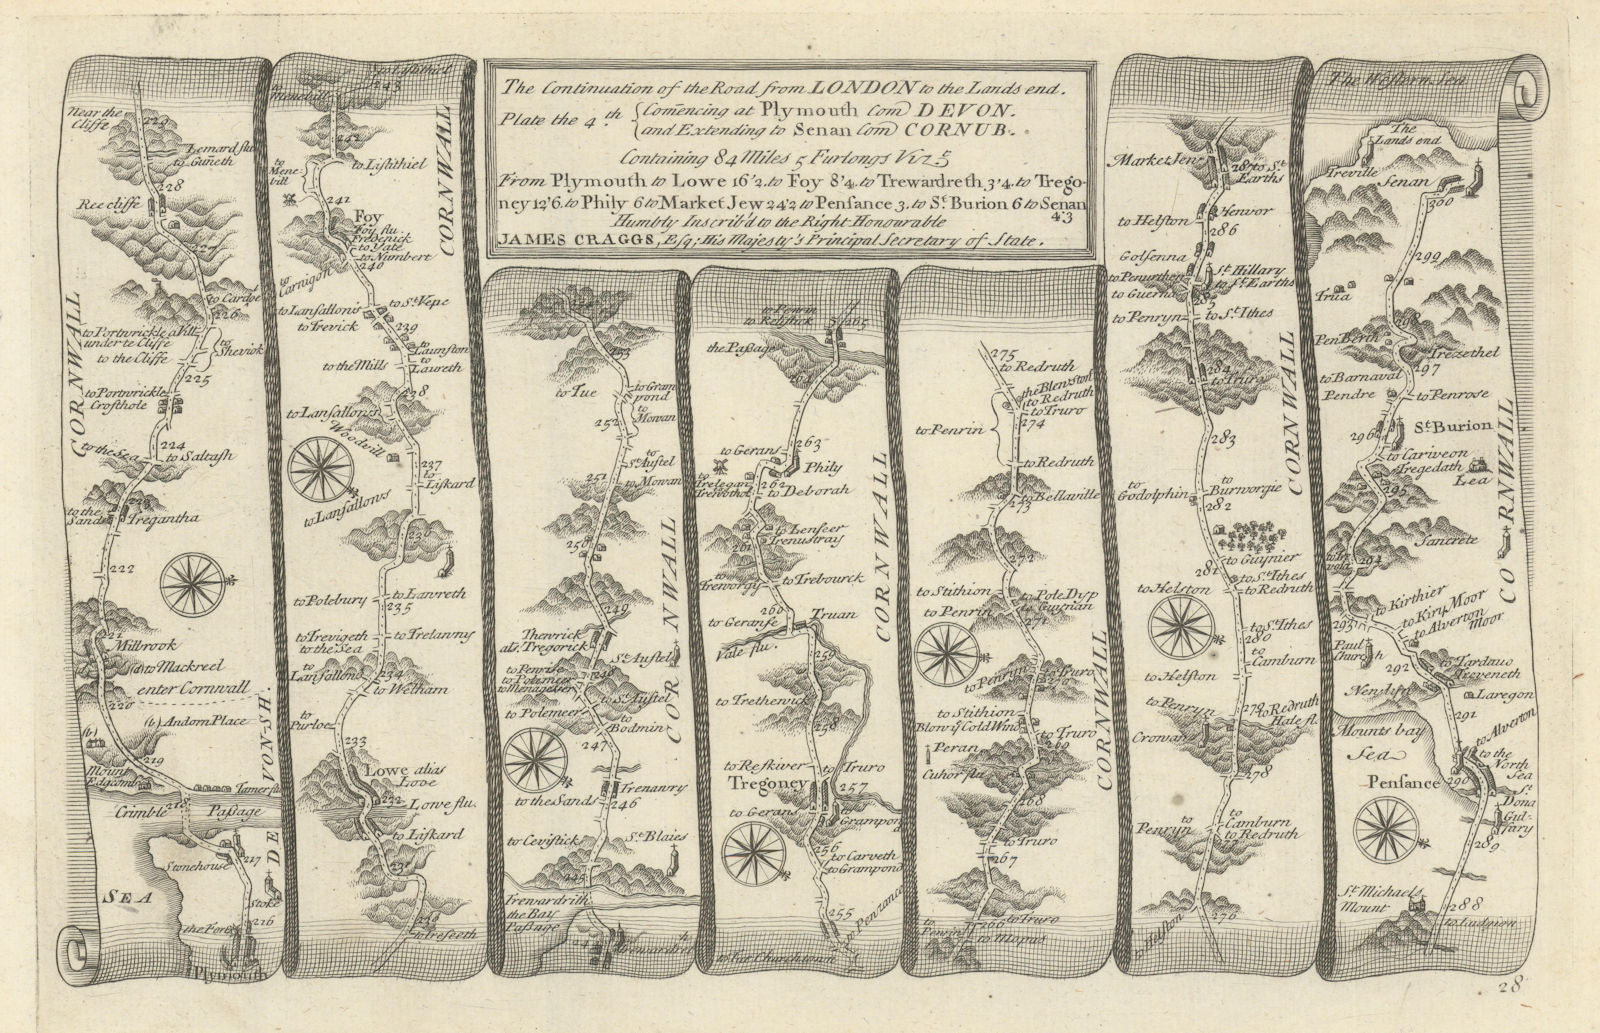 The Continuation of the Road from LONDON to the Lands end.
Plate the 4th. Com̄encing at Plymouth Com DEVON.
and Extending to Senan Com CORNUB.
Containing 84 Miles 5 Furlongs Vizt
From Plymouth to Lowe 16'2. to Foy 8'4. to Trewardreth 3'4. to Trego-
ney 12'6. to Phily 6 to Market Jew 24'2 to Pensance 3. to St. Burion 6 to Senan
4'3
Humbly Inscrib'd to the Right Honourable
JAMES CRAGGS, Esq; His Majesty's Principal Secretary of State.
Near the
Cliffe
229
Lemard flu
to Guneth
228
Ree cliffe
227
to Cardoe
226
to Portwrickle a Vill
under te Cliffe
to the Cliffe
to
Sheviok
225
to Portwrickle
Crofthole
CORNWALL
224
to the Sea
to Saltash
223
to the
Sands
Tregantha
222
221
Millbrook
(a) to Mackreel
enter Cornwall
220
(b) Andorn Place
(b)
219
Mount
Edgcomb
Tamer flu
Crimble
218
Passage
217
Stonehouse
DEVON-SH.
SEA
Stoke
216
the Fort
Plymouth
to Menebill
to Listithiel
243
242
to Listithiel
to
Mene
bill
241
Foy
Foy flu.
Frederick
to Yate
to Numbert
240
to
Cornigon
CORNWALL
to Lansallons
to St. Vepe
to Trevick
239
to
Launston
to the Mills
to
Laureth
238
to Lansallons
Woodvill
237
to
Liskard
to Lansallows
236
to Polebury
to Lanreth
235
to Trevigeth
to the Sea
to Trelawny
to
Lansallons
234
to Welham
to
Purloe
233
Lowe alias
Love
232
Lowe flu.
to Liskard
231
230
to Treseeth
254
253
to Tue
to Gram
pond
to
Mowan
252
to
St. Austel
251
to Mowan
250
CORNWALL
249
Thenrick
als. Tregorick
St. Austel
to Penrise
to Polemeer
to Menagesey
248
to St. Austel
to Polemeer
to
Bodmin
247
Trenawry
to the Sands
246
to Cevistick
St. Blaies
245
Trewardrith
the Bay
Passage
244
Trewardreth
to Penrin
to Restick
265
the Passage
264
263
to Gerans
Phily
to
Trelegan
Trewothol
262
to Deborah
to Lenseer
Trenustray
261
to
Treworgy
to Trebourck
CORNWALL
260
to Geranse
Truan
Vale flu.
259
to Trethenick
258
to Reskiver
to Truro
Tregoney
257
to Gerans
Grampond
256
to Carveth
to Grampond
255
to Penzance
to Fat Churchtown
275
to Redruth
the Blewstod
to Redruth
to Truro
274
to Penrin
to Redruth
to Bellaville
273
272
to Stithion
to Pole Dyp
to Gugnan
to Penrin
271
to Truro
to Penrin
270
CORNWALL
to Stithion
Blow ye Cold Wind
to Truro
269
Peran
Cuhor flu
268
to Truro
267
to
Penrin
to Truro
266
to Mopus
Market Jew
287
to St.
Earths
to Helston
Henvor
286
Golsenna
to Penurthen
to Guerno
St. Hillary
to St. Earths
285
to Penryn
to St. Ithes
284
to Truro
CORNWALL
283
to
Godolphin
to
Burworgie
282
281
to Guynier
to Helston
to St. Ithes
to Redruth
to St. Ithes
280
to
Camburn
to Helston
to Penryn
279
to Redruth
Hale fl.
Crowan
278
to
Penryn
to
Camburn
to Redruth
277
to Helston
276
The Western Sea
The
Lands end
Treville
Senan
300
299
Trua
298
Pen Berth
Trezethel
297
to Barnaval
Pendre
to Penrose
St. Burion
296
to Cariveon
Tregedath
Lea
295
CORNWALL
Sancrete
294
to Kirthier
to Kiry Moor
to Alverton
Moor
293
Paul
Church
292
to Tardauo
Treveneth
Laregon
291
to Alverton
to the
North
Sea
Mounts bay
Sea
Pensance
290
St
Dona
Gul-
fary
289
St. Michaels
Mount
288
to Ludgion
28